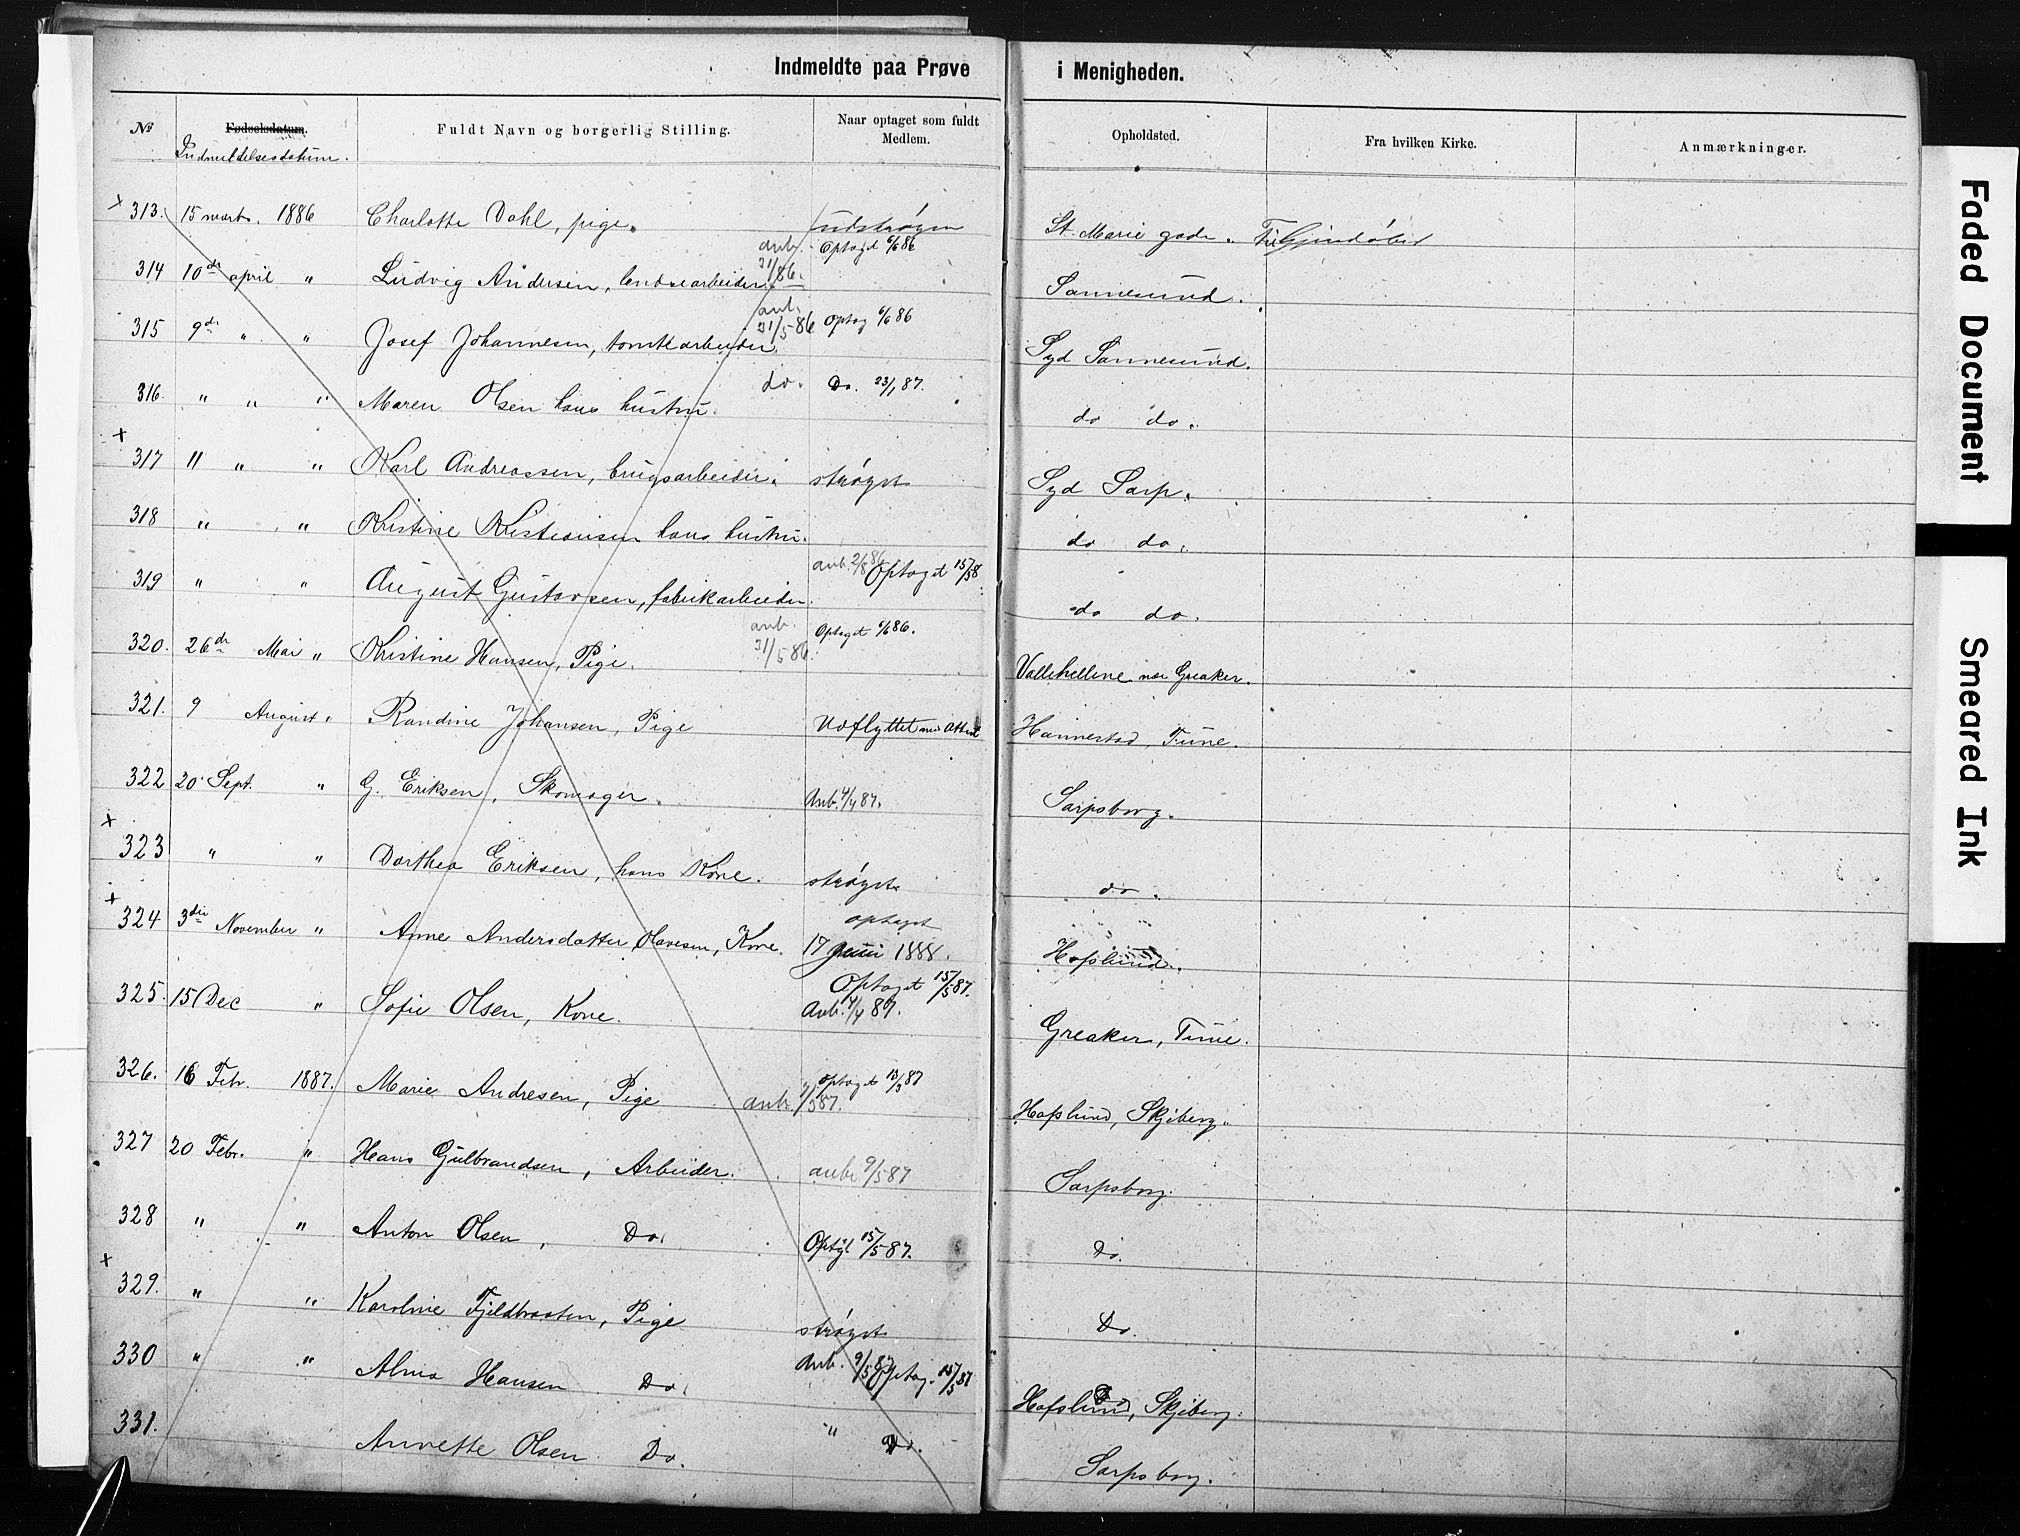 Indmeldte paa Prøve i Menigheden.
№ Fødselsdatum. Fuldt Navn og borgerlig Stilling. Naar optaget som fuldt Medlem. Opholdsted. Fra hvilken Kirke. Anmærkninger.
Indmeldelsesdatum.
x 313. 15 marts. 1886 Charlotte Dahl, pige. udstrøgen St. Marie gade.
314 10de april " Ludvig Andersen, lendsearbeider anb. 31/86. Optaget 6/6 86 Sannesund.
315 9de " " Josef Johannesen, tomtearbeider. anb. 31/5 86 Optag 6/6 86 Syd Sannesund.
316. " " " Maren Olsen hans hustru. do. Do. 23/1 87. do do.
x 317 11 " " Karl Andreassen, brugsarbeider. strøget Syd Sarp.
318 " " Kristine Kristiansen hans hustru. do do.
319 " " August Gustavsen, fabrikarbeider. anb. 2/8 86 Optaget 15/5 8 do do.
320. 26de Mai " Kristine Hansen, Pige. anb. 31/5 86. Optaget 6/6 86. Vallehellene nær Greaker.
321. 9 August " Randine Johansen, Pige Udflyttet med Attest Hannestad, Tune.
322 20 Sept. " G. Eriksen, Skomager. Anb. 4/4 87. Sarpsborg.
x 323 " " Dorthea Eriksen, hans Kone. strøget do.
x 324 3die November " Anne Andersdatter Olavesen, Kone. optaget 17 Juni 1888. Hafslund.
325. 15 Dec " Sofie Olsen, Kone. Optaget 15/5 87. Anb. 4/4 87. Greaker, Tune.
326. 16 Febr. 1887. Marie Andresen, Pige anb. 9/5 87. optaget 13/3 87 Hafslund, Skjeberg.
327 20 Febr. " Hans Gulbrandsen, Arbeider. anb. 9/5 87 Sarpsborg.
328 " " Anton Olsen, Do. Optgt 15/5 87. Do.
x 329. " " Karoline Fjeldbraaten, Pige strøget Do.
330 " " Alma Hansen Do. Anb. 9/5 87 Optag. 15/5 87 Hafslund, Skjeberg.
331. Annette Olsen Do. " Do. Sarpsborg.
Faded Document
Smeared Ink